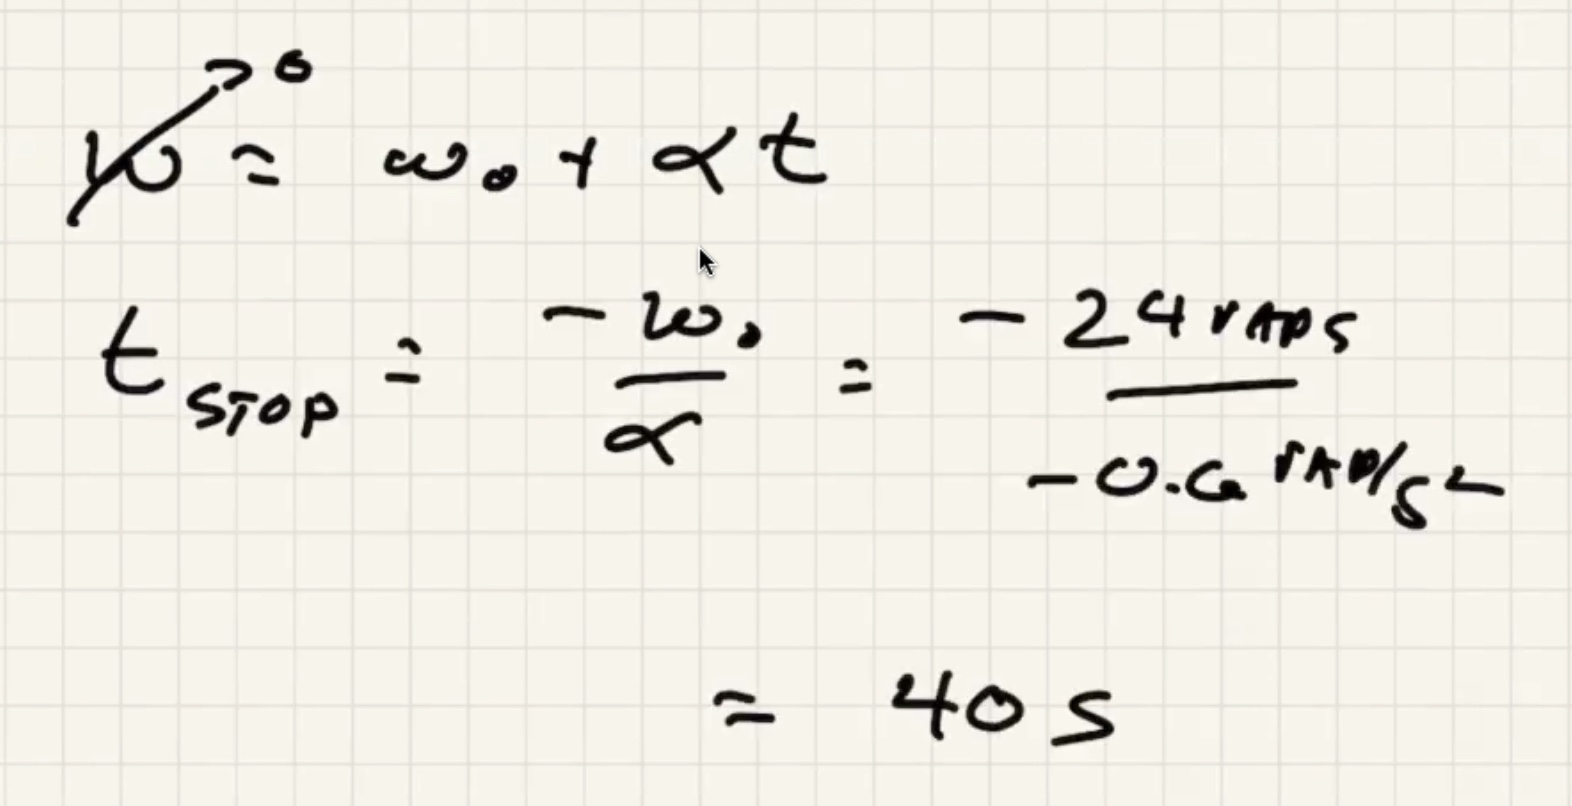 ω → 0 = ω₀ + αt
t STOP = -ω₀ / α = -24 rads / -0.6 rad/s²
= 40 s